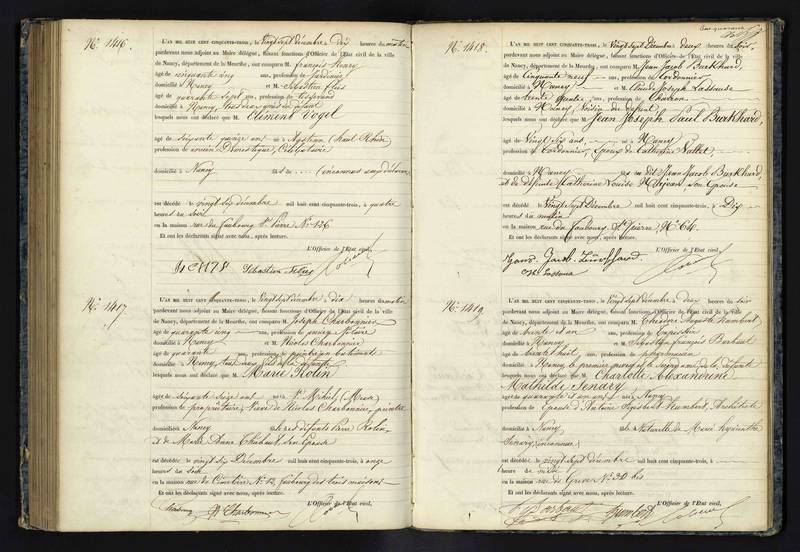 N.° 1416.
L'AN MIL HUIT CENT CINQUANTE-TROIS, le Vingt sept décembre à dix heures du matin
pardevant nous adjoint au Maire délégué, faisant fonctions d'Officier de l'Etat civil de la ville
de Nancy, département de la Meurthe, ont comparu M. François Henry
âgé de cinquante cinq ans, profession de Jardinier
domicilié à Nancy et M. Sébastien
âgé de quarante sept ans, profession de tisserand
domicilié à Nancy, tous deux
lesquels nous ont déclaré que M. Climent Vogel
âgé de soixante ans né à (haut Rhin)
profession de ancien Domestique, Célibataire
domicilié à Nancy fils de (inconnus
est décédé le vingt six décembre mil huit cent cinquante-trois, à quatre
heures du soir
en la maison rue du faubourg St. Pierre N.° 126
Et ont les déclarants signé avec nous, après lecture.
L'Officier de l'Etat civil,
Sébastien
N.° 1417
L'AN MIL HUIT CENT CINQUANTE-TROIS, le Vingt sept décembre à dix heures du matin
pardevant nous adjoint au Maire délégué, faisant fonctions d'Officier de l'Etat civil de la ville
de Nancy, département de la Meurthe, ont comparu M. Joseph Charbonnier
âgé de quarante cinq ans, profession de Notaire
domicilié à Nancy et M. Nicolas Charbonnier
âgé de quarante ans, profession de peintre en bâtiments
domicilié à Nancy, tous deux fils de la défunte
lesquels nous ont déclaré que M. Marie Rolin
âgé de soixante seize ans né à St. Mihiel, (Meuse)
profession de propriétaire, Veuve de Nicolas Charbonnier, peintre
domicilié à Nancy fille des défunts Pierre Rolin,
et de Marie Anne son épouse
est décédé le vingt six Décembre mil huit cent cinquante-trois, à onze
heures du soir
en la maison rue du Cimetière N.° 12, faubourg des trois maisons
Et ont les déclarants signé avec nous, après lecture.
L'Officier de l'Etat civil,
Charbonnier
N.° 1418.
L'AN MIL HUIT CENT CINQUANTE-TROIS, le Vingt Sept Décembre deux heures du soir,
pardevant nous adjoint au Maire délégué, faisant fonctions d'Officier de l'Etat civil de la ville
de Nancy, département de la Meurthe, ont comparu M. Jean Jacob Burkhard,
âgé de Cinquante neuf ans, profession de Cordonnier
domicilié à Nancy et M. Claude Joseph Lasseuse
âgé de trente quatre ans, profession de Charron
domicilié à Nancy, voisin du défunt
lesquels nous ont déclaré que M. Jean Joseph Paul Burkhard,
âgé de Vingt Six ans, né à Nancy
profession de Cordonnier, Epoux de Catherine Vallet,
domicilié à Nancy fils du dit Jean Jacob Burkhard,
et de défunte Catherine Louise son Epouse
est décédé le Vingt Sept Décembre mil huit cent cinquante-trois, à Dix
heures du matin
en la maison rue du faubourg St. Pierre, N.° 64.
Et ont les déclarants signé avec nous, après lecture.
L'Officier de l'Etat civil,
N.° 1419
L'AN MIL HUIT CENT CINQUANTE-TROIS, le Vingt sept décembre à deux heures du soir
pardevant nous adjoint au Maire délégué, faisant fonctions d'Officier de l'Etat civil de la ville
de Nancy, département de la Meurthe, ont comparu M. Théodore Auguste Humbert,
âgé de trente et un ans, profession de tapissier
domicilié à Nancy et M. Sébastien François
âgé de trente huit ans, profession de pharmacien
domicilié à Nancy, le premier et le second ami de la défunte
lesquels nous ont déclaré que M. Charlotte Alexandrine
Mathilde
âgé de quarante et un ans né à Nancy
profession de Epouse d'Antoine Humbert, Architecte
domicilié à Nancy fille naturelle de Marie hyacinthe
est décédé le vingt sept décembre mil huit cent cinquante-trois, à
heure de midi
en la maison rue de Grève N.° 30 bis
Et ont les déclarants signé avec nous, après lecture.
L'Officier de l'Etat civil,
Humbert